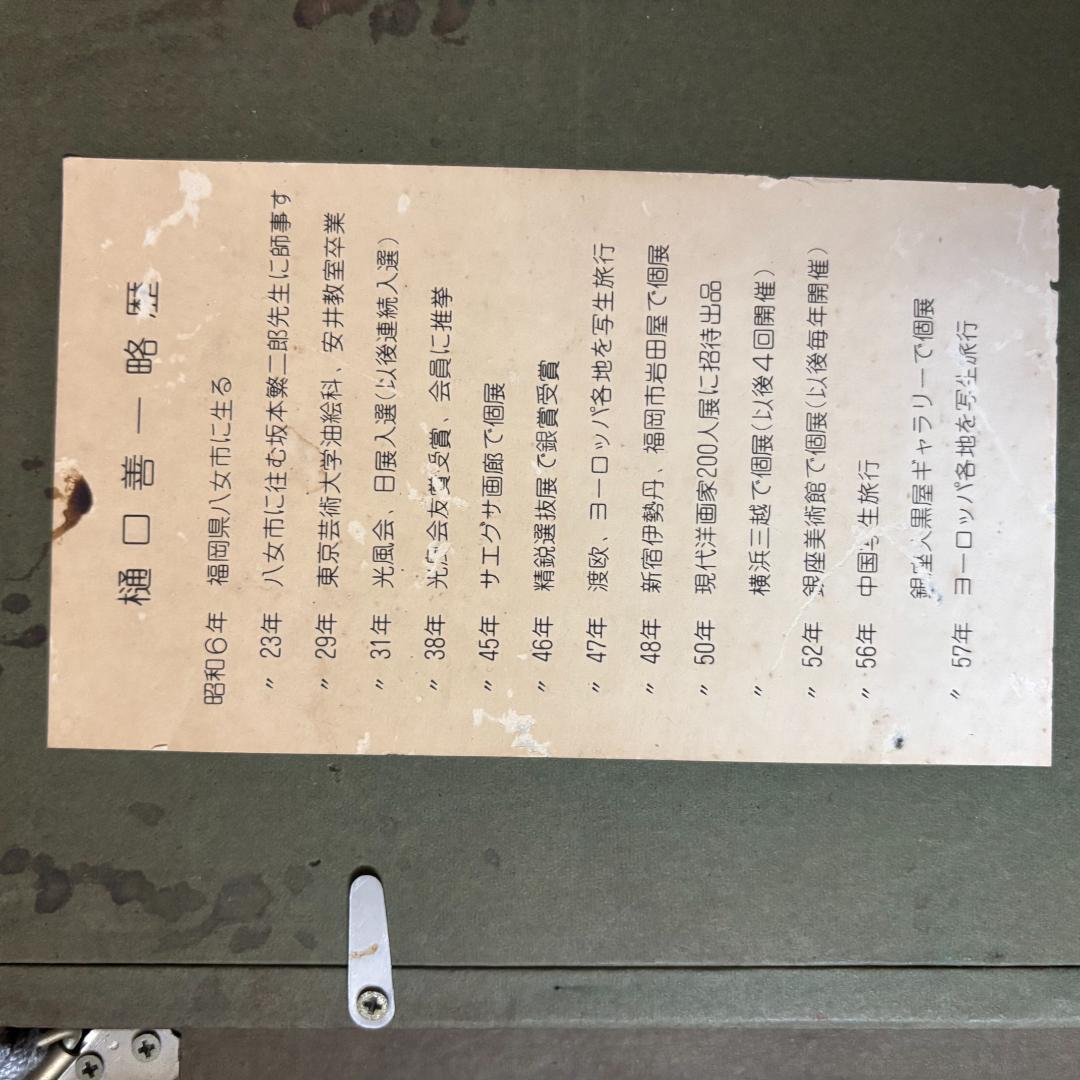 樋口善一略歴
昭和6年 福岡県八女市に生る
〃 23年 八女市に住む坂本繁二郎先生に師事す
〃 29年 東京芸術大学油絵科、安井教室卒業
〃 31年 光風会、日展入選(以後連続入選)
〃 38年 光風会友賞受賞、会員に推挙
〃 45年 サエグサ画廊で個展
〃 46年 精鋭選抜展で銀賞受賞
〃 47年 渡欧、ヨーロッパ各地を写生旅行
〃 48年 新宿伊勢丹、福岡市岩田屋で個展
〃 50年 現代洋画家200人展に招待出品
〃 横浜三越で個展(以後4回開催)
〃 52年 銀座美術館で個展(以後毎年開催)
〃 56年 中国写生旅行
銀座大黒屋ギャラリーで個展
〃 57年 ヨーロッパ各地を写生旅行